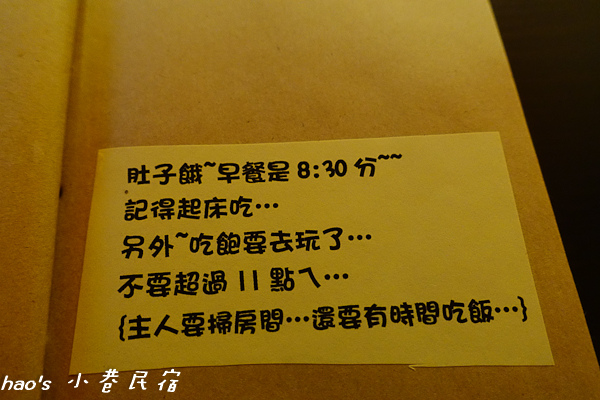 肚子餓~早餐是 8:30 分~~
記得起床吃…
另外~吃飽要去玩了…
不要超過 11 點ㄟ…
{主人要掃房間…還要有時間吃飯…}
hao's 小巷民宿